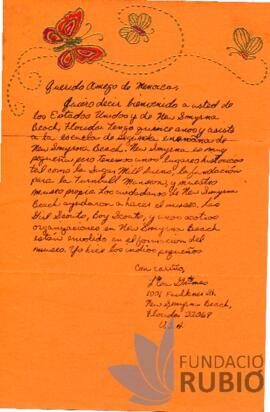 Querido Amigo de Menorca,
Quiero decir bienvenido a usted de
los Estados Unidos y de New Smyrna
Beach, Florida. Tengo quince años y asisto
a la escuela de Segunda Enseñanza de
New Smyrna Beach. New Smyrna es muy
pequeña pero tenemos unos lugares historicos
tal como la Sugar Mill ruins, la fundación
para la Turnbull Mansion, y nuestro
museo propio. Los ciudadanos de New Smyrna
Beach ayudaron a hacer el museo. Los
Girl Scouts, Boy Scouts, y unos otros
organizaciones en New Smyrna Beach
están envolvido en el formacion del
museo. Yo hice los indios pequeños.
Con cariño,
1001 Faulkner St.
New Smyrna Beach,
Florida 32069
U.S.A.
FUNDACIÓ
RUBIÓ